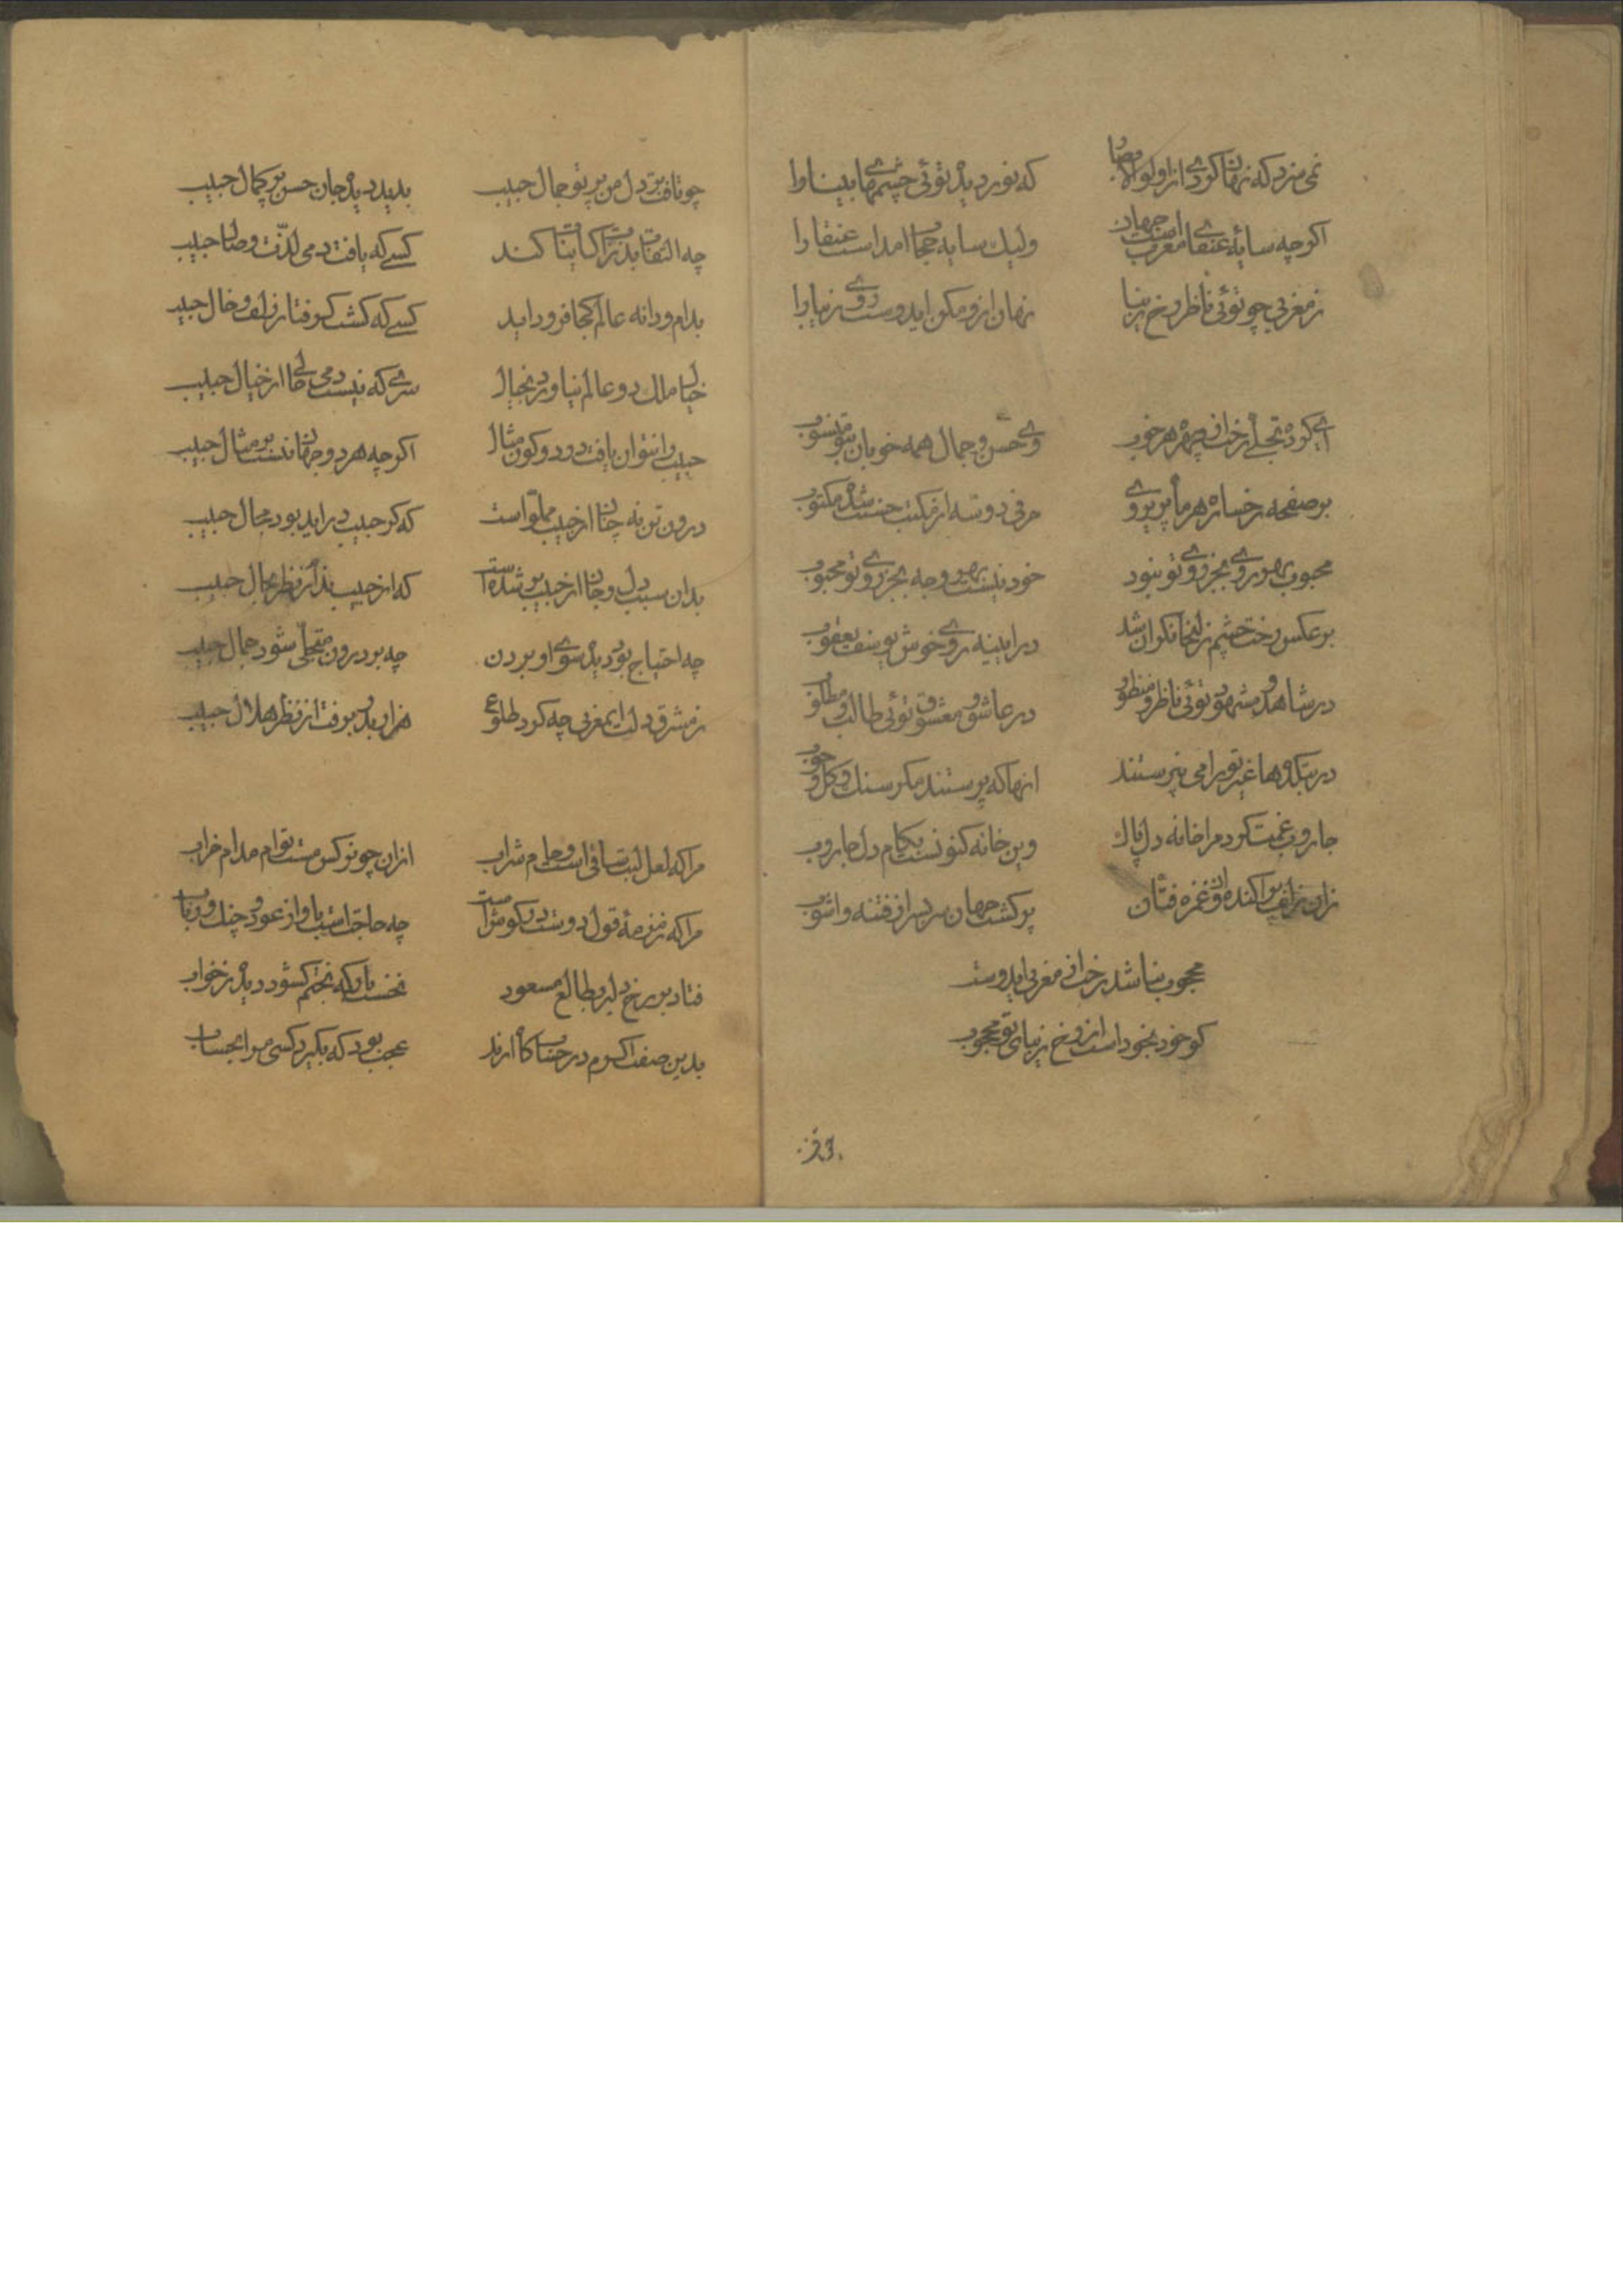 نمی سزد که نهان کردی از اولو الابصار که نور دیده توئی چشمهای بینا را
اگرچه سایهٔ عنقای مغرب است جهان ولیک سایه حجاب امد است عنقا را
ز مغربی چو توئی ناظر رخ زیبا نهان ازو مکن ایدوست روی زیبا را
ای کرده تجلی رخت از چهره هر خوب وی حسن و جمال همه خوبان بتو منسوب
بر صفحه رخساره هر ماه پریروی حرفی دو سه از مکتب حسنت شده مکتوب
محبوب بهر روی بجز روی تو نبود خود نیست بهر وجه بجز روی تو محبوب
بر عکس رخت چشم زلیخا نگران شد در ایینه روی خوش یوسف یعقوب
در شاهد و مشهود توئی ناظر و منظور در عاشق و معشوق توئی طالب و مطلوب
در بتکدها غیر تو را می نپرستند انها که پرستند مکر سنک و کل و چوب
جاروب غمت کرد مرا خانه دل پاک وین خانه کنونست بکام دل جاروب
زان زلف پراکنده و زان غمزه فتان پر کشت جهان سر بسر از فتنه و اشوب
محجوب نباشد رخت از مغربی ایدوست
کو خود بخود است از رخ زیبای تو محجوب
چو تافت بر دل من پرتو جمال حبیب بدید دیده جان حسن پر کمال حبیب
چه التفات بلذات کاینات کند کسی که یافت دمی لذت وصال حبیب
بدام و دانه عالم کجا فرود اید کسی که کشت کرفتار زلف و خال حبیب
خیال ملک دو عالم نیاورد بخیال سری که نیست دمی خالی از خیال حبیب
حبیب را نتوان یافت در دو کون مثال اکرچه هر دو جهان نیست بر مثال حبیب
درون تن نه چنان از حبیب مملو است که کر حبیب در اید بود مجال حبیب
بدان سبب دل و جان از حبیب پر شده است که از حبیب ندارد نظر بحال حبیب
چه احتیاج بود دیده سوی او بردن چه بر درون متجلی شود جمال حبیب
ز مشرق دلت ایمغربی چه کرد طلوع هزار بدر برفت از نظر هلال حبیب
مرا که لعل لبت ساقی است و جام شراب ازان چو نرکس مست توام مدام خراب
مرا که زمزمهٔ قول دوست در کوش است چه حاجت است باواز عود و چنک و رباب
فتاد بر رخ دلبر بطالع مسعود نخست بار که بختم کشود دیده ز خواب
بدین صفت اکرم در حساب کاه ارند عجب بود که بگیرد کسی مرا بحساب